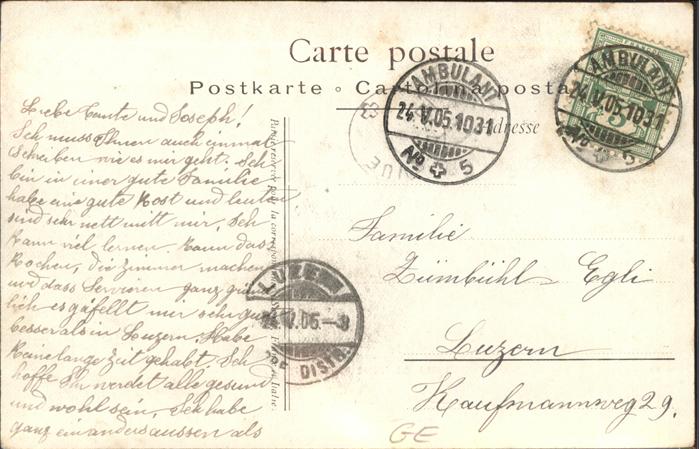 Carte postale
Postkarte ° Cartolina postale
Adresse
AMBULANT
24.V.05.1031
No 5
AMBULANT
24.V.05.1031
No 5
FRANCO
5
Liebe Tante und Joseph!
Ich muss Ihnen auch einmal
schreiben wie es mir geht. Ich
bin in einer guten Familie
habe eine gute Kost und leuten
sind sehr nett mit mir. Ich
kann viel lernen. Kann das
Kochen, die Zimmer machen
und dass Servieren ganz gründ
lich es gäfellt mir sehr gut
besser als in Luzern. Habe
keine lange Zeit gehabt. Ich
hoffe Ihr werdet alle gesund
und wohl sein. Ich habe
ganz ein anders aussen als
LUZERN
24.V.05.-8
DISTR.
Familie
Zümbühl - Egli
Luzern
Kaufmannweg 29.
GE